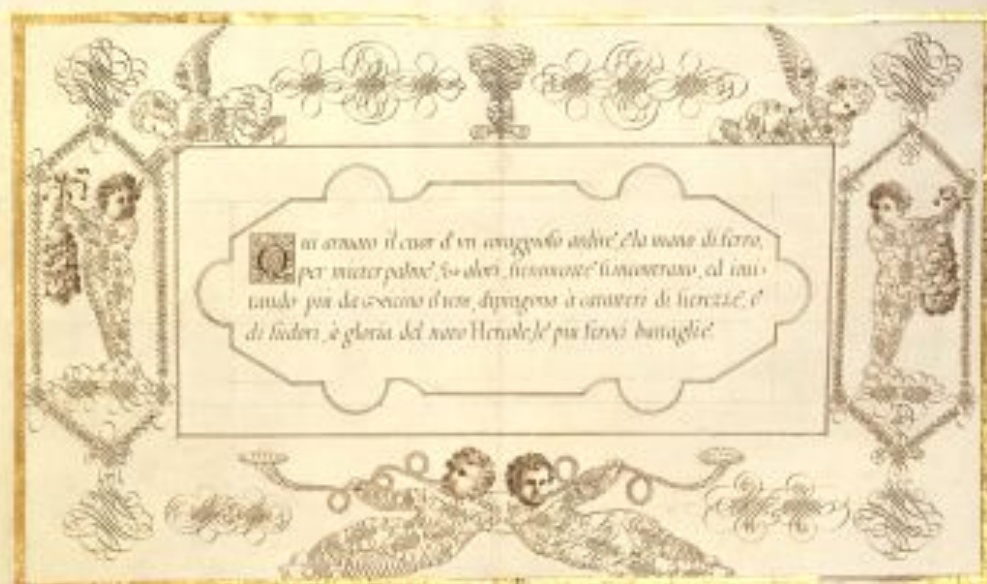 Qui armato il cuor d'un coraggioso ardire, e la mano di ferro,
per mieter palme, ed allori, fieramente s'incontrano, ed imi-
tando più da vicino il vero, dipingono à caratteri di fierezze, e
di sudori, à gloria del nato Hercole, le più feroci battaglie.